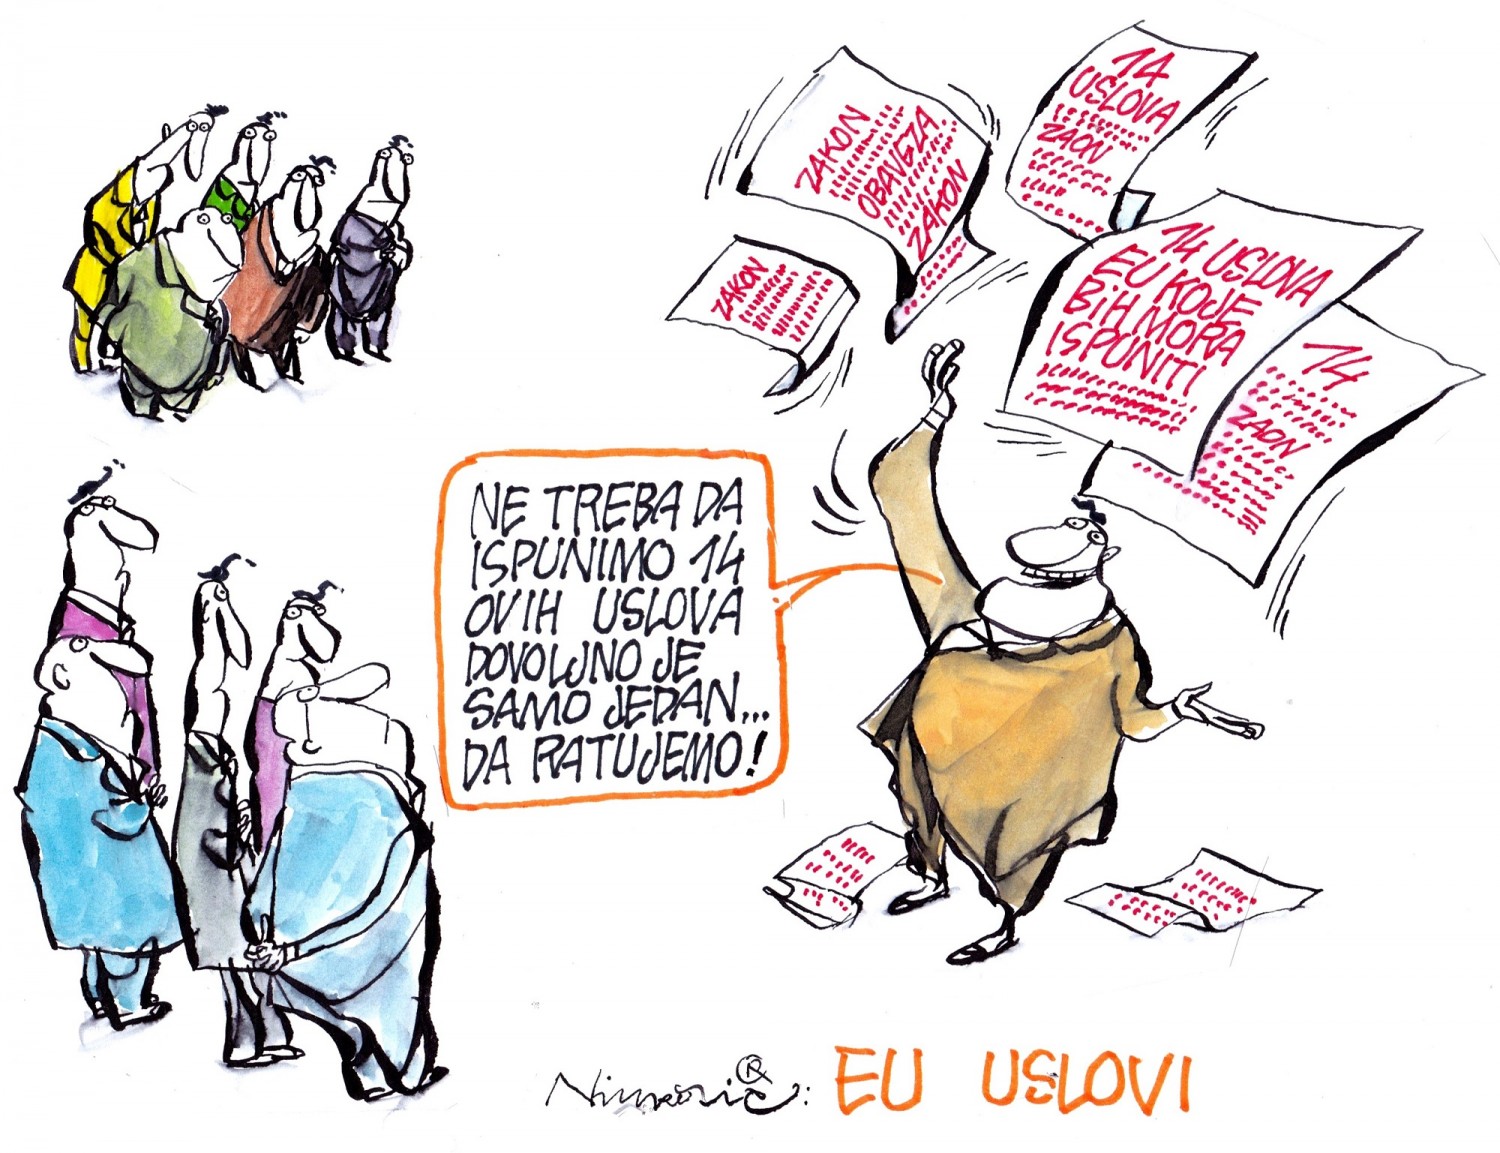 ZAKON
OBAVEZA
ZAKON
14
USLOVA
ZAON
ZAKON
14 USLOVA
EU KOJE
BIH MORA
ISPUNITI
14
ZAON
NE TREBA DA
ISPUNIMO 14
OVIH USLOVA
DOVOLJNO JE
SAMO JEDAN...
DA RATUJEMO!
EU USLOVI